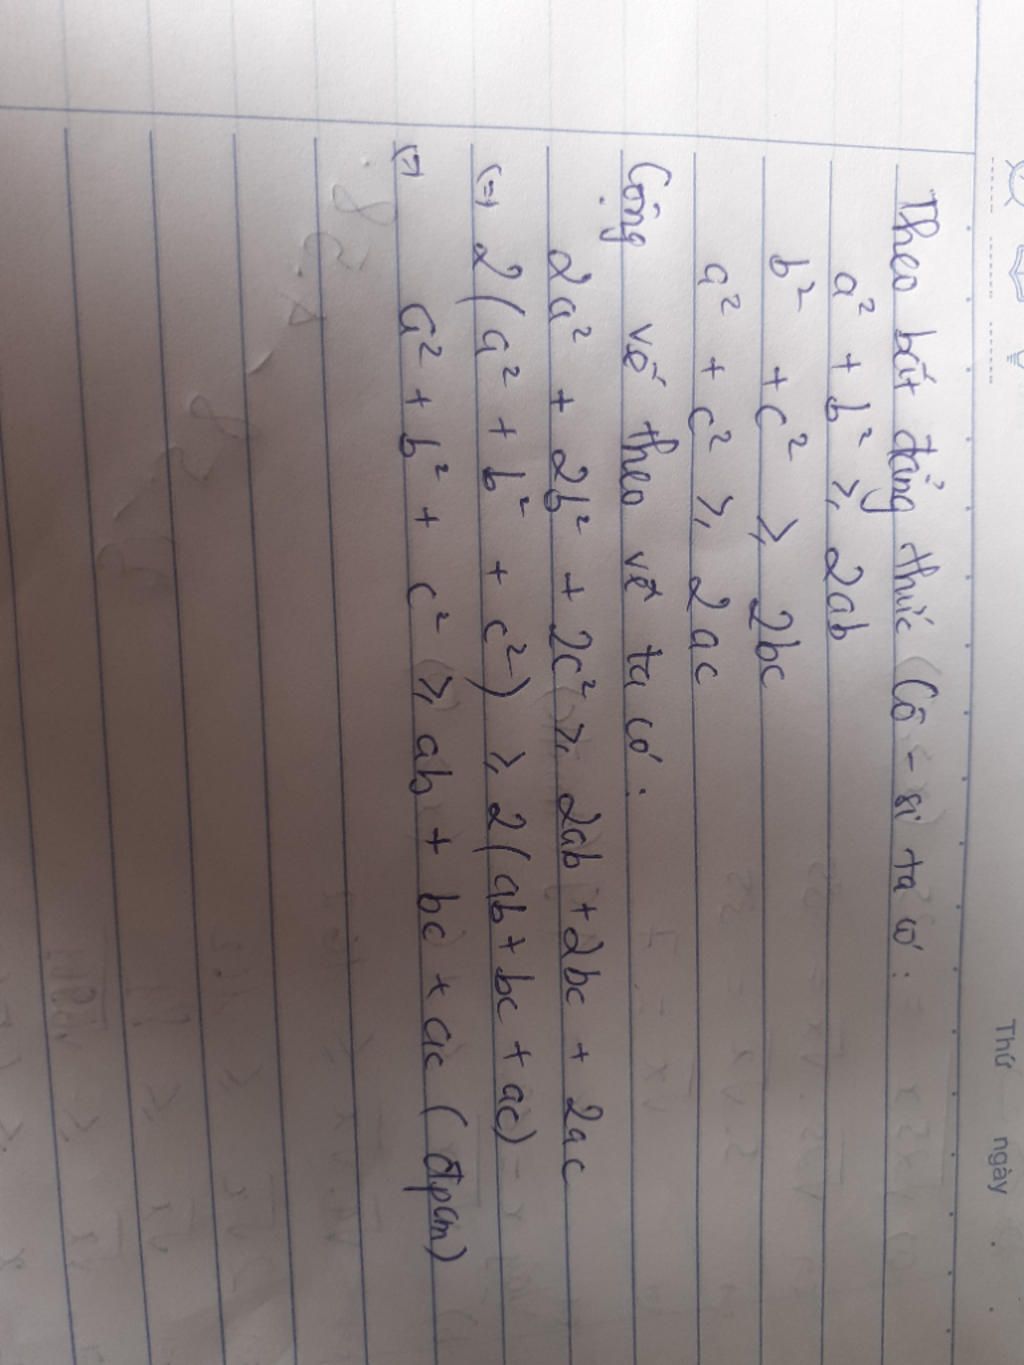 Thứ ngày
Theo bất đẳng thức Cô - si ta có :
a² + b² ≥ 2ab
b² + c² ≥ 2bc
a² + c² ≥ 2ac
Cộng vế theo vế ta có :
2a² + 2b² + 2c² ≥ 2ab + 2bc + 2ac
(=) 2(a² + b² + c²) ≥ 2(ab + bc + ac)
(=) a² + b² + c² ≥ ab + bc + ac (đpcm)